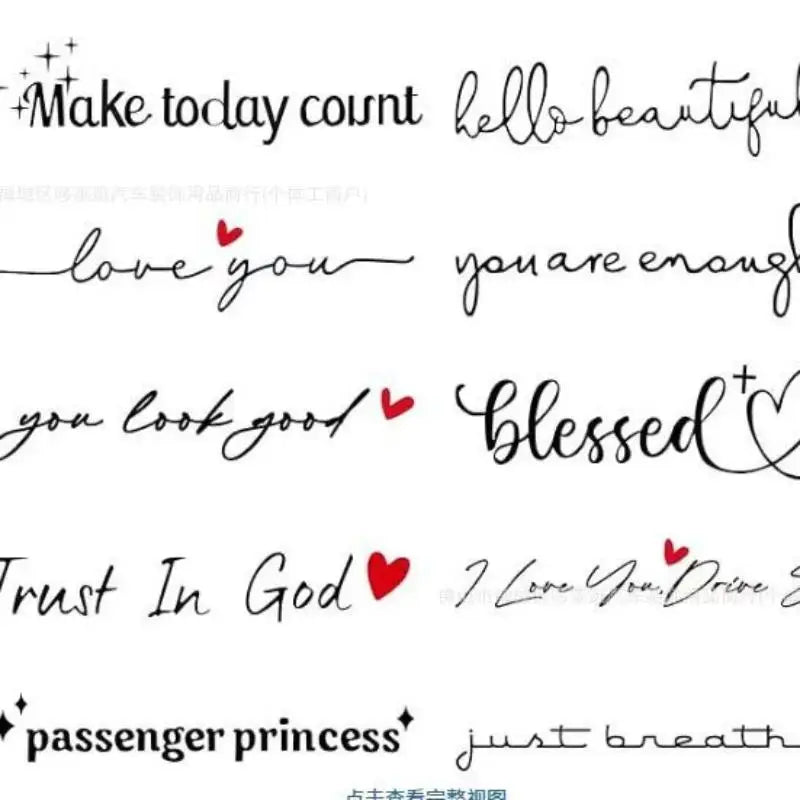 Make today count
hello beautiful
love you
you are enough
you look good
blessed
Trust In God
I Love You Drive S
passenger princess
just breath
点击查看完整视图